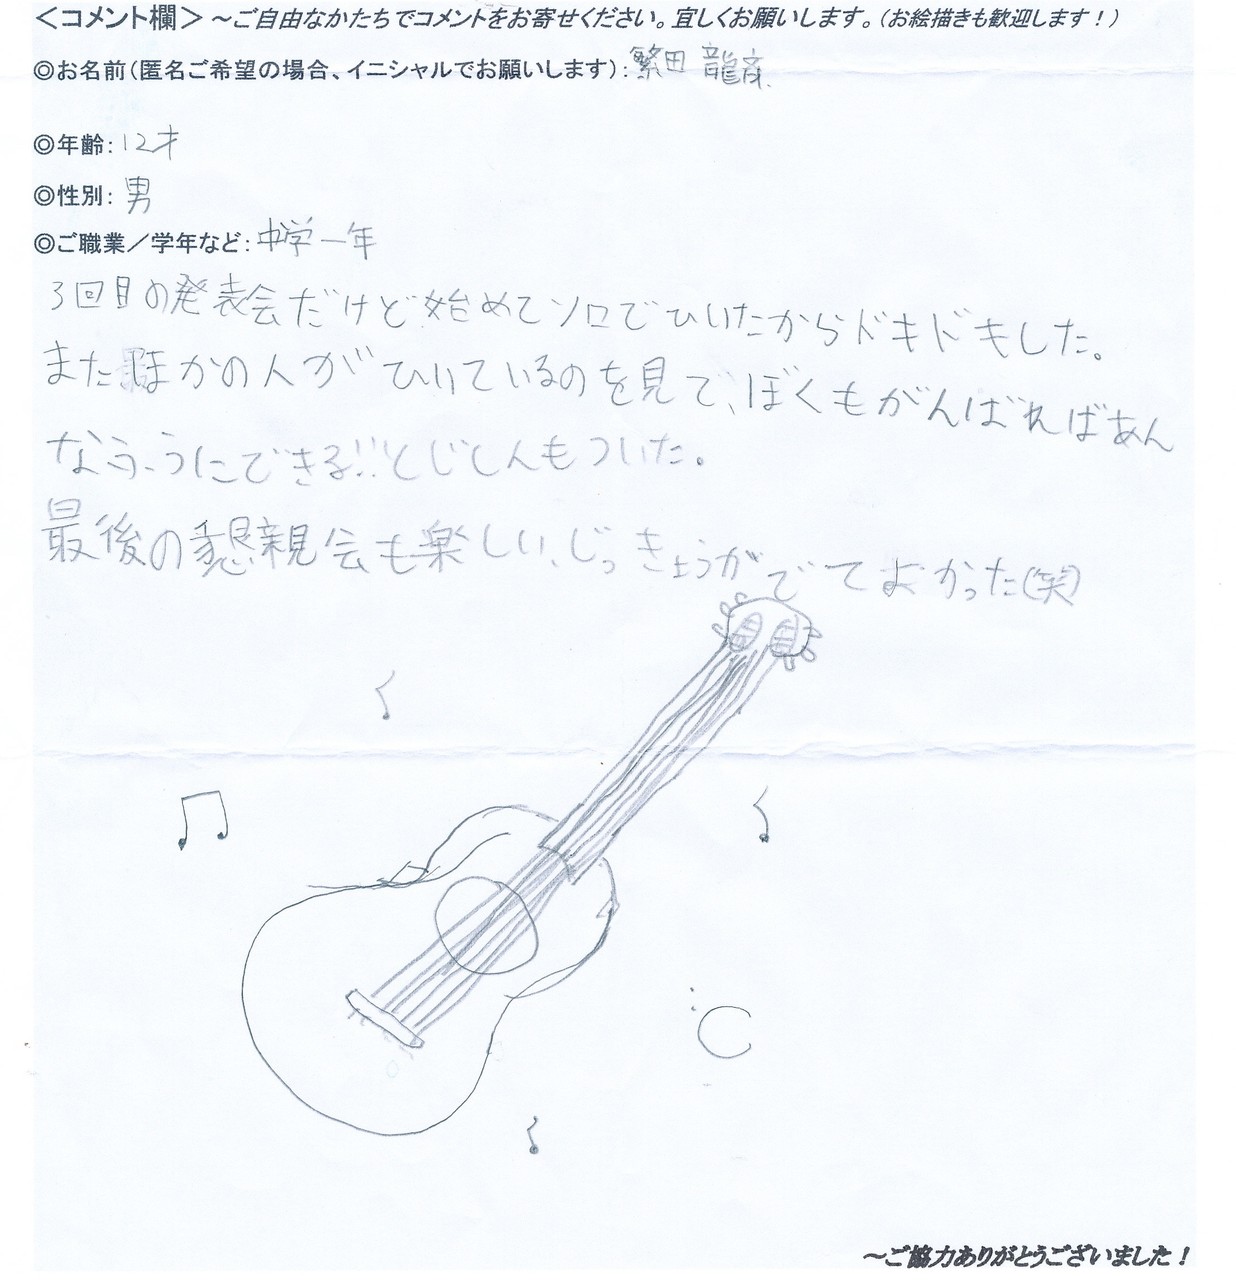 ＜コメント欄＞～ご自由なかたちでコメントをお寄せください。宜しくお願いします。（お絵描きも歓迎します！）
◎お名前（匿名ご希望の場合、イニシャルでお願いします）：繁田 龍彦
◎年齢：12才
◎性別：男
◎ご職業／学年など：中学一年
3回目の発表会だけど始めてソロでひいたからドキドキした。
また ほかの人がひいているのを見て、ぼくもがんばればあん
なふうにできる!!とじしんもついた。
最後の懇親会も楽しい、じっきょうがでてよかった(笑)
～ご協力ありがとうございました！